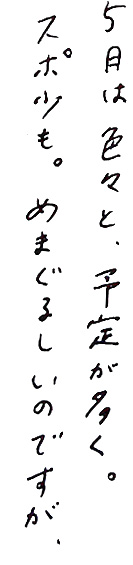 5月は色々と、予定が多く。
スポ少も。めまぐるしいのですが、